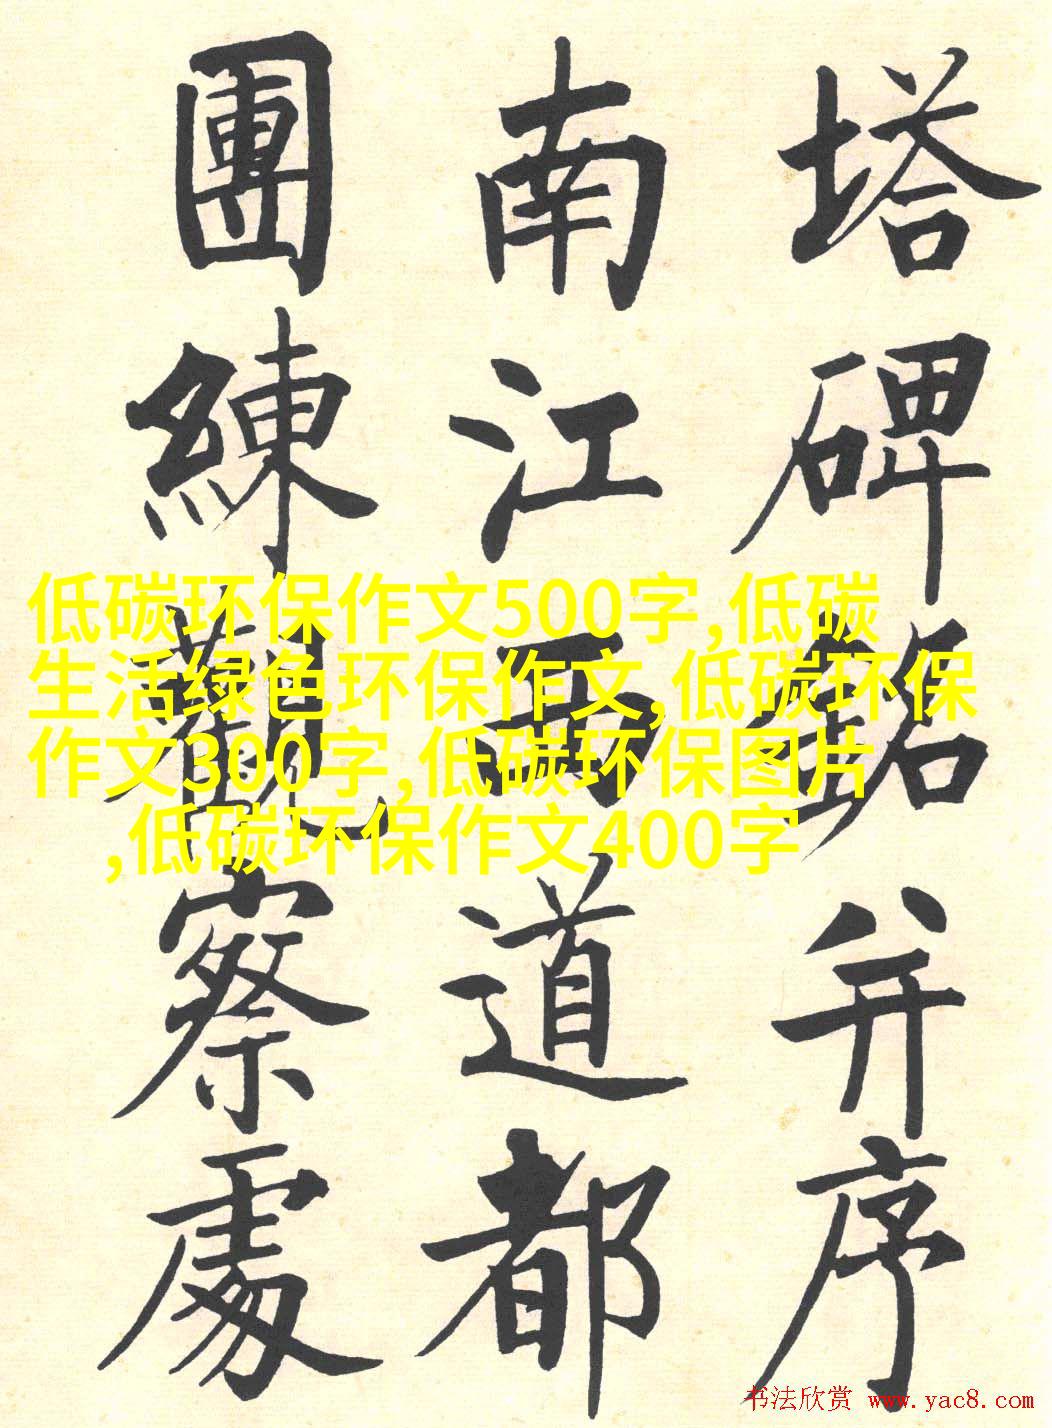 塔碑銘并序
南江西道都
團練觀察處
低碳环保作文500字,低碳
生活绿色环保作文,低碳环保
作文300字,低碳环保图片
,低碳环保作文400字
书法欣赏 www.yac8.com